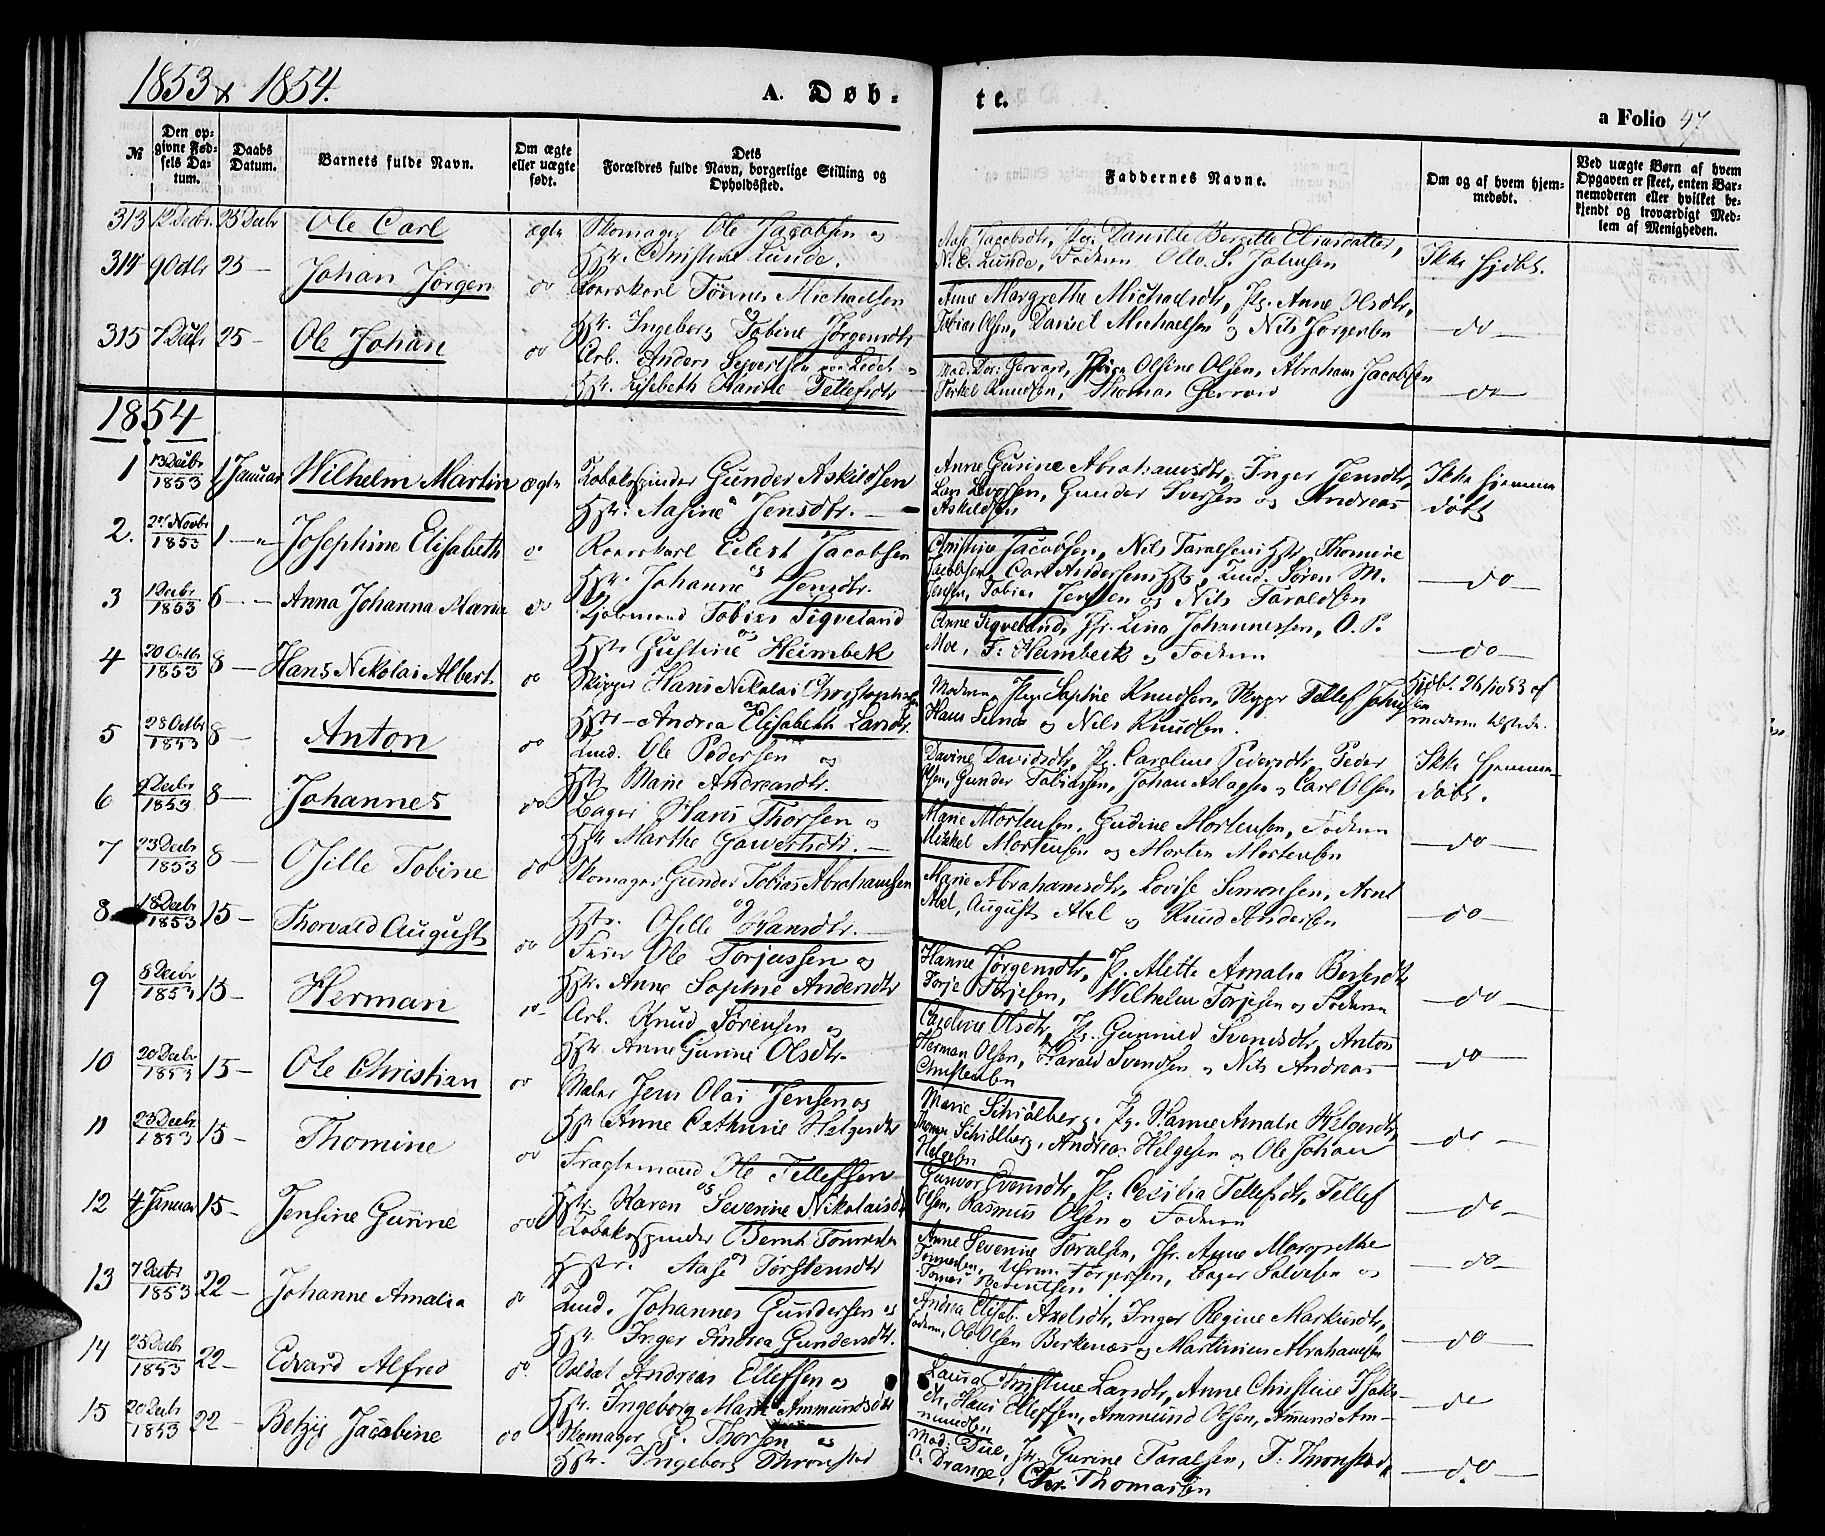 1853 & 1854.
A. Døb-
te.
a Folio 47
№
Den op-
givne Fød-
sels Da-
tum.
Daabs
Datum.
Barnets fulde Navn.
Om ægte
eller uægte
født.
Dets
Forældres fulde Navn, borgerlige Stilling og
Opholdssted.
Faddernes Navne.
Om og af hvem hjem-
medøbt.
Ved uægte Børn af hvem
Opgaven er skeet, enten Bar-
nemoderen eller hvilket be-
kjendt og troværdigt Med-
lem af Menigheden.
313 12 Decbr. 25 Decbr Ole Carl ægte Skomager Ole Jacobsen og
Hstr. Christine Lunde.
Aase Jacobsdtr, Pg. Danille Bergitte Eliasdatter,
N. C. Lunde, Faderen Otto S. Johnsen
314 9 Octbr 25 — Johan Jørgen do Tønnes Michaelsen og
Hstr. Ingeborg Tobine Jørgensdtr
Anne Margrethe Michaelsdtr, Pg. Anne Olsdtr,
Tobias Olsen, Daniel Michaelsen og Nils Jørgensen
Ikke hjdbt.
do
315 7 Decbr 25 — Ole Johan do Arb. Anders Syvertsen og
Hstr. Lisebeth Marthe Tellefsdtr
Mad. Gerrard, Olsine Olsen, Abraham Jacobsen
Terkel Knudsen, Thomas Gerrard
do
1854
1 13 Decbr 1853 1 Januar Wilhelm Martin ægte Tobakspinder Gunder Askildsen
Hstr. Aasine Jensdtr. —
Anne Gurine Abrahamsdtr, Inger Jensdtr,
Gunder Iversen og Andreas
Askildsen
Ikke hjemme
døbt
2. 27 Novbr 1853 1 — " Josephine Elisabeth do Eilert Jacobsen
og Hstr. Johanne Jensdtr.
Christine Jacobsen, Nils Taraldsens Hstr, Thomine
Jacobsen, Carl Andersens Hstr, Søren M.
Jensen, Tobias Jensen og Nils Taraldsen
do
3 1 Decbr 1853 6 — Anna Johanna Maria do Kjøbmand Tobias Sigveland
og Hstr Gustine Heimbek
Anne Sigveland, Jfr. Lina Johannessen, O. P.
Moe, F. Heimbeck og Faderen
do
4 20 Octbr 1853 8 — Hans Nikolai Albert do Skipper Hans Nikolai Christophersen
og Hstr — Andrea Elisabeth Larsdtr.
Moderen, Pg. Sophie Knudsen, Skipper Tellef Johnsen
Hans Lund og Nils Knudsen.
Hjdbt. 26/10 53 af
5 28 Octbr 1853 8 — Anton do Ole Pedersen og
Hstr Marie Andreasdtr.
Davine Davidsdtr, Pg. Caroline Pedersdtr, Peder
Olsen, Gunder Tobiassen, Johan Aslagsen og Carl Olsen
Ikke hjemme-
døbt.
6 4 Decbr 1853 8 — Johannes do Bager Hans Thorsen og
Hstr Marthe
Marie Mortensen, Gudine Mortensen, Faderen
Mikkel Mortensen og Morten Mortensen
do
7 23 Decbr 1853 8 Osille Tobine do Skomager Gunder Tobias Abrahamsen
og Hstr. Osille Hansdtr. —
Marie Abrahamsdtr, Lovise Simonsen, Arnt
Abel, August Abel og Knud Andersen
do
8 18 Decbr 1853 15 — Thorvald August do Feier Ole Torjussen og
Hstr. Anne Sophie Andersdtr
Hanne Jørgensdtr, Pg. Alette Amalia
Torje Torjesen, Wilhelm Torjesen og Faderen
do
9 8 Decbr 1853 15 — Herman do Arb. Knud Sørensen og
Hstr. Anne Gurine Olsdtr.
Caroline Olsdtr, Pg. Gunnild Svendsdtr, Anton
Herman Olsen, Harald Svendsen og Nils Andreas
Christensen
do
10 20 Decbr 1853 15 — Ole Christian do Maler Jens Olai Jensen og
Hstr Anne Cathrine Helgesdtr
Marie Schiølberg, Pg. Hanne Amalie Helgesdtr,
Thomas Schiølberg, Andreas Helgesen og Ole Johan
Helgesen
do
11 23 Decbr 1853 15 — Thomine do Fragtemand Ole Tellefsen
og Hstr. Karen Severine Nikolaisdtr
Gunvor Evensdtr, Pg. Cecilia Tellefsdtr, Tellef
Olsen, Rasmus Olsen og Faderen
do
12 4 Januar 15 — Jensine Gurine do Tobakspinder Bernt Tønnesen
og Hstr. Aase Torstensdtr
Anne Severine Toralsen, Jfr. Anne Margrethe
Tønnesen, Torgersen, Bager Salvesen og
Tønnes Berentsen
do
13 7 Decbr 1853 22 — Johanne Amalia do Johannes Gundersen og
Hstr. Inger Andrea Gundersdtr.
Andrea Elisab. Axelsdtr, Inger Regine Markusdtr,
Faderen, Ole Olsen Berkenæs og Martinius Abrahamsen
do
14 25 Decbr 1853 22 — Edvard Alfred do. Soldat Andreas Ellefsen og
Hstr. Ingeborg Marie Ammundsdtr
Laura Christine Larsdtr, Anne Christine
dtr, Hans Ellefsen, Ammund Olsen, Amund Am-
mundsen
do
15 20 Decbr 1853 22 — Betzy Jacobine do Skomager G. Thorsen og
Hstr. Ingeborg Thronstad
Mad: Due, Jfr. Gurine Taralsen, T. Thronstad,
O. Drange, Chr. Thomassen
do